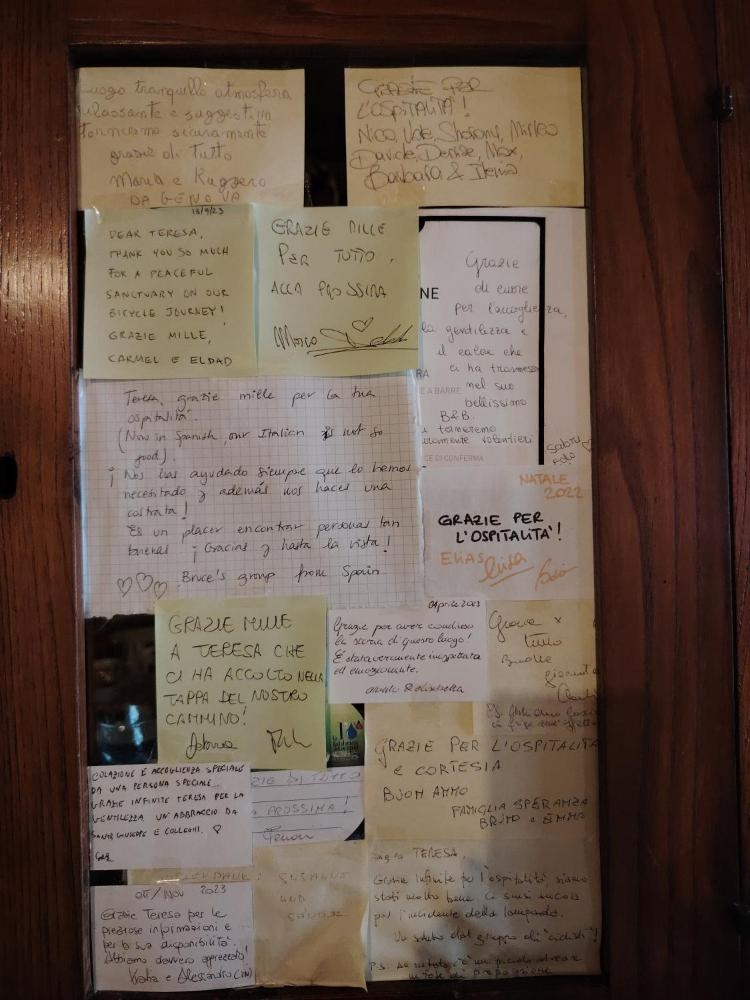 Luogo tranquillo atmosfera
rilassante e suggestiva
torneremo sicuramente
grazie di tutto
Maria e Ruggero
DA GENOVA
GRAZIE PER
L'OSPITALITÀ!
Nico, Sharon, Mirko
Davide, Denise, Max,
Barbara & Ilenia
13/9/23
DEAR TERESA,
THANK YOU SO MUCH
FOR A PEACEFUL
SANCTUARY ON OUR
BICYCLE JOURNEY!
GRAZIE MILLE,
CARMEL E ELDAD
GRAZIE MILLE
PER TUTTO,
ALLA PROSSIMA
Marco
NE
RA
E A BARRE
CE DI CONFERMA
Grazie
di cuore
per l'accoglienza,
la gentilezza e
il calore che
ci ha trasmesso
nel suo
bellissimo
B&B.
torneremo
sicuramente volentieri
Teresa, grazie mille per la tua
ospitalità.
(Now in Spanish, our Italian is not so
good).
¡Nos has ayudado siempre que lo hemos
necesitado y además nos haces una
!
Es un placer encontrar personas tan
buenas ¡Gracias y hasta la vista!
Bruce's group from Spain
NATALE
2022
GRAZIE PER
L'OSPITALITA'!
ELIAS Luisa
GRAZIE MILLE
A TERESA CHE
CI HA ACCOLTO NELLA
TAPPA DEL NOSTRO
CAMMINO!
Aprile 2023
Grazie per aver condiviso
la storia di questo luogo!
È stata veramente inaspettata
ed emozionante.
Elisabetta
Grazie x
tutto
Buone
giornate
GRAZIE PER L'OSPITALITÀ
e CORTESIA
BUON ANNO
FAMIGLIA SPERANZA
BRUNO e EMMA
COLAZIONE E ACCOGLIENZA SPECIALE
DA UNA PERSONA SPECIALE...
GRAZIE INFINITE TERESA PER LA
GENTILEZZA UN ABBRACCIO DA
GIUSEPPE E COLLEGHI.
GRAZIE DI TUTTO
PROSSIMA!
SUSANNE
UND
SANDOR
OTT/NOV 2023
Grazie Teresa per le
preziose informazioni e
per la sua disponibilità.
Abbiamo davvero apprezzato!
Katia e Alessandro (MN)
TERESA,
Grazie infinite per l'ospitalità, siamo
stati molto bene. Ci scusi ancora
per l'incidente della lampada.
Un saluto dal gruppo di "ciclisti"!